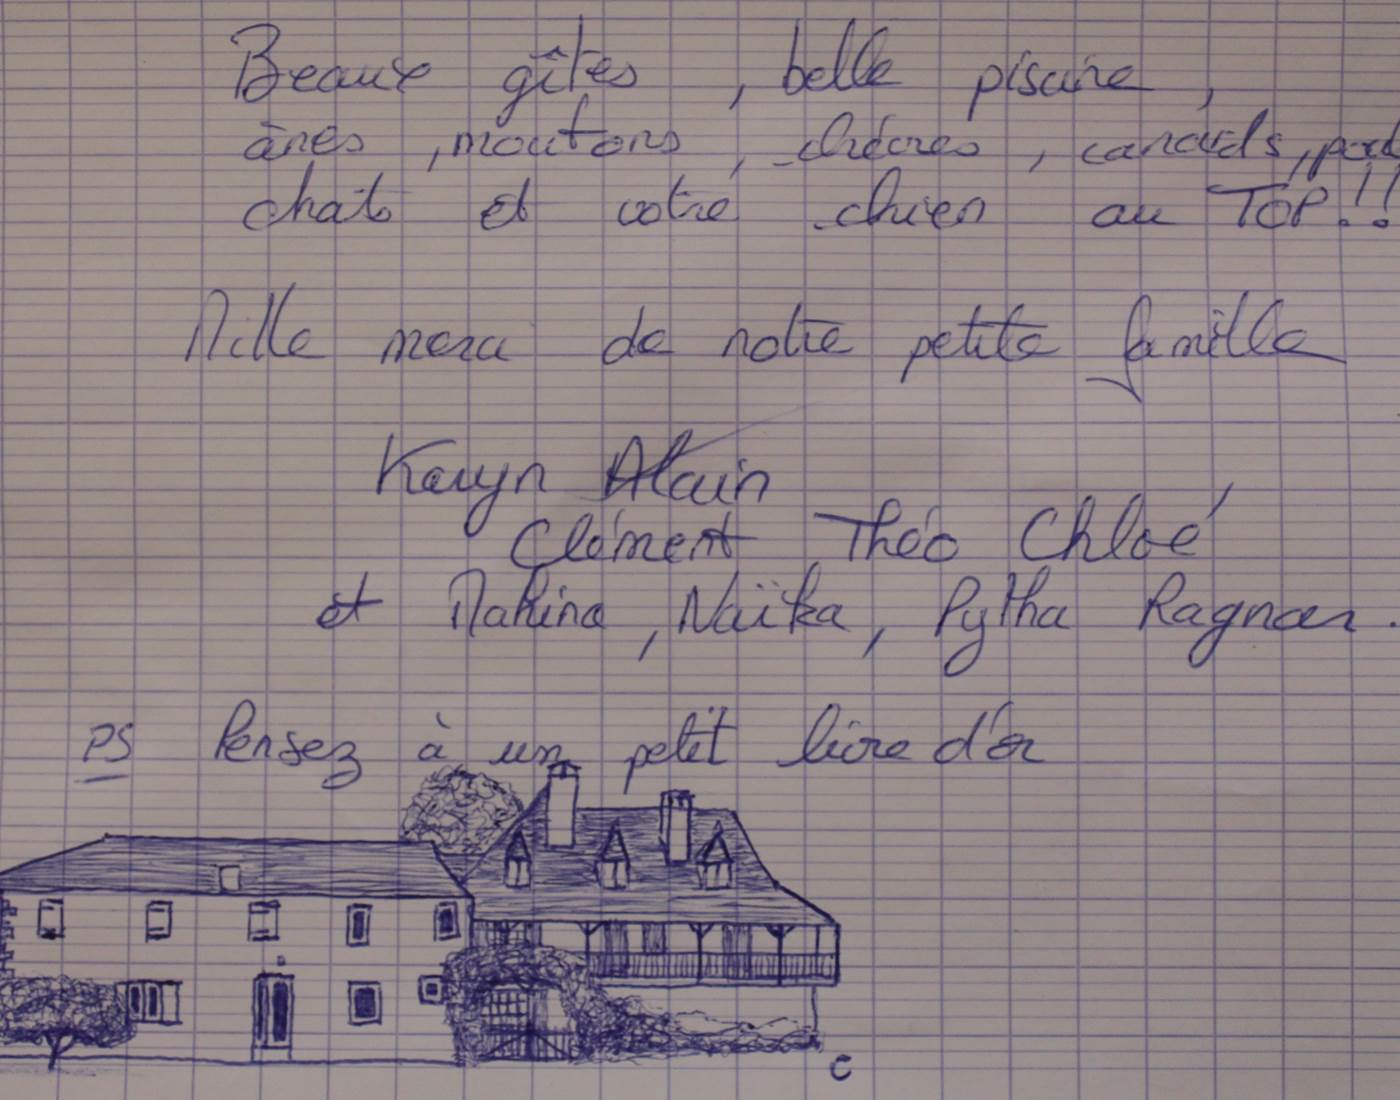 Beaux gîtes, belle piscine,
ânes, moutons, chèvres, canards,
chats et votre chien au TOP!!
Mille merci de notre petite famille
Karyn Alain
Clément Théo Chloé
et Mahina, Naïka, Pytha Ragnar.
PS Pensez à un petit livre d'or
C